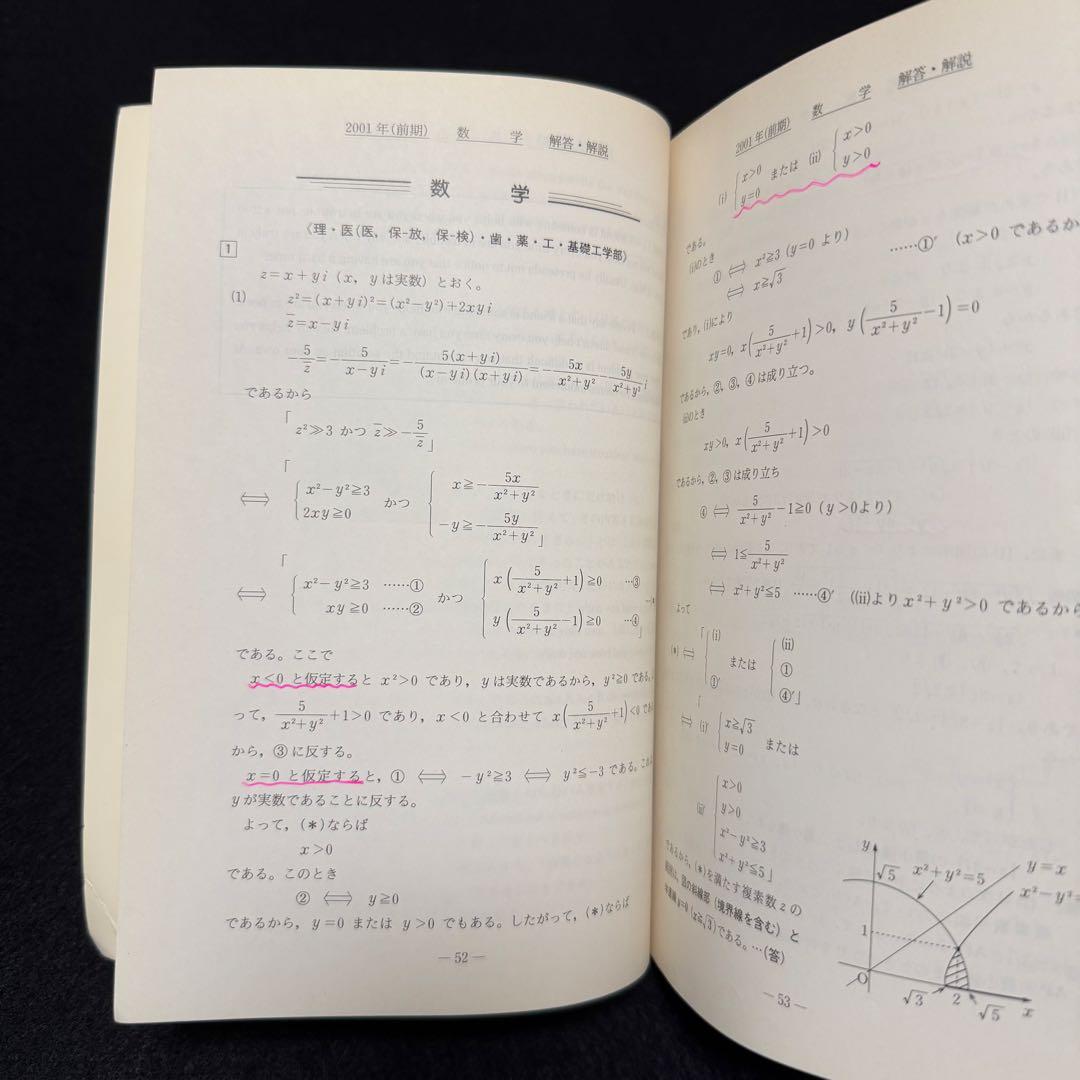 2001年(前期) 数 学 解答・解説
数 学
《理・医(医, 保-放, 保-検)・歯・薬・工・基礎工学部》
1
z=x+yi (x, yは実数) とおく。
(1) z²=(x+yi)²=(x²-y²)+2xyi
z̄=x-yi
-5/z̄=-5/(x-yi)=-5(x+yi)/((x-yi)(x+yi))=-5x/(x²+y²)-5y/(x²+y²)i
であるから
「z²≫3 かつ z̄≫-5/z̄」
⟺ 「{x²-y²≧3 2xy≧0 かつ {x≧-5x/(x²+y²) -y≧-5y/(x²+y²)」
⟺ 「{x²-y²≧3 ……① xy≧0 ……② かつ {x(5/(x²+y²)+1)≧0 …③ y(5/(x²+y²)-1)≧0 …④」
である。ここで
x<0 と仮定すると x²>0 であり, yは実数であるから, y²≧0 である。
って, 5/(x²+y²)+1>0 であり, x<0 と合わせて x(5/(x²+y²)+1)<0
から, ③に反する。
x=0 と仮定すると, ① ⟺ -y²≧3 ⟺ y²≦-3 である。
yが実数であることに反する。
よって, (*)ならば
x>0
である。このとき
② ⟺ y≧0
であるから, y=0 または y>0 でもある。したがって, (*)ならば
—52—
2001年(前期) 数 学 解答・解説
(i) {x>0 y=0 または (ii) {x>0 y>0
である。
(i)のとき
① ⟺ x²≧3 (y=0 より)
⟺ x≧√3 ……①′ (x>0 であるか
であり, (i)により
xy=0, x(5/(x²+y²)+1)>0, y(5/(x²+y²)-1)=0
であるから, ②, ③, ④は成り立つ。
(ii)のとき
xy>0, x(5/(x²+y²)+1)>0
であるから, ②, ③は成り立ち
④ ⟺ 5/(x²+y²)-1≧0 (y>0より)
⟺ 1≦5/(x²+y²)
⟺ x²+y²≦5 ……④′ ((ii)より x²+y²>0 であるから
よって
(*) ⟺ 「{(i) ①′ または {(ii) ① ④′」
⟺ 「(i)′ {x≧√3 y=0 または
(ii)′ {x>0 y>0 x²-y²≧3 x²+y²≦5」
であるから, (*)を満たす複素数 z の
図の斜線部 (境界線を含む) と
半直線 y=0 (x≧√3) である。…(答)
y
√5
x²+y²=5
y=x
x²-y²=
1
O
√3
2
√5
x
—53—